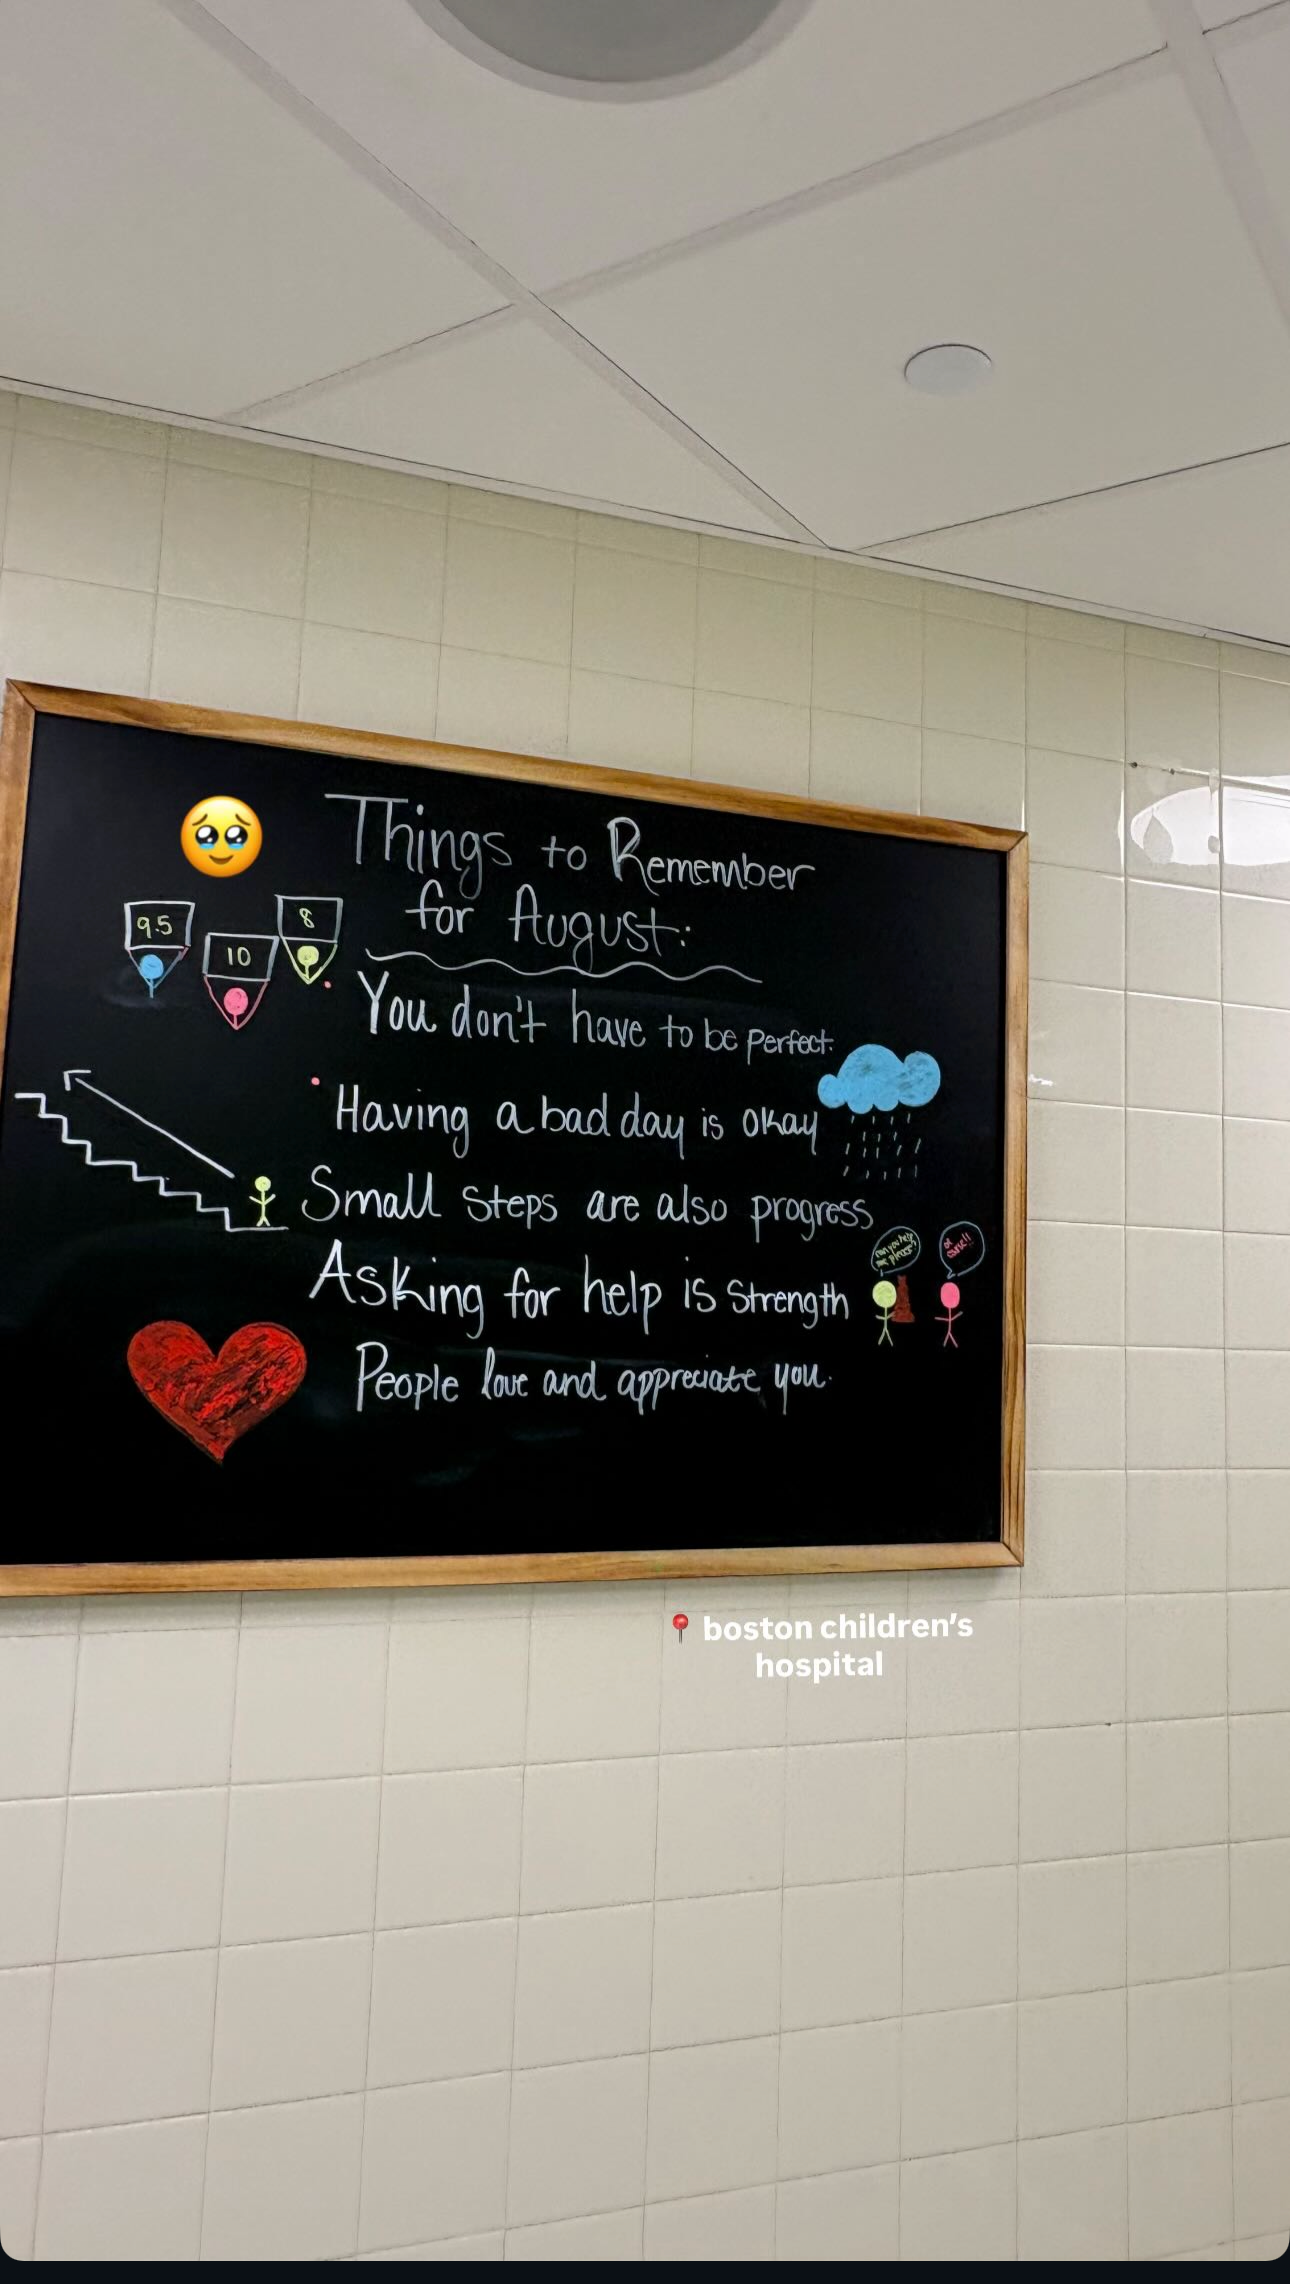 Things to Remember
for August:
9.5
10
8
You don't have to be perfect.
Having a bad day is okay
Small steps are also progress
can you help
me please?
of
course!!
Asking for help is strength
People love and appreciate you.
📍 boston children's
hospital